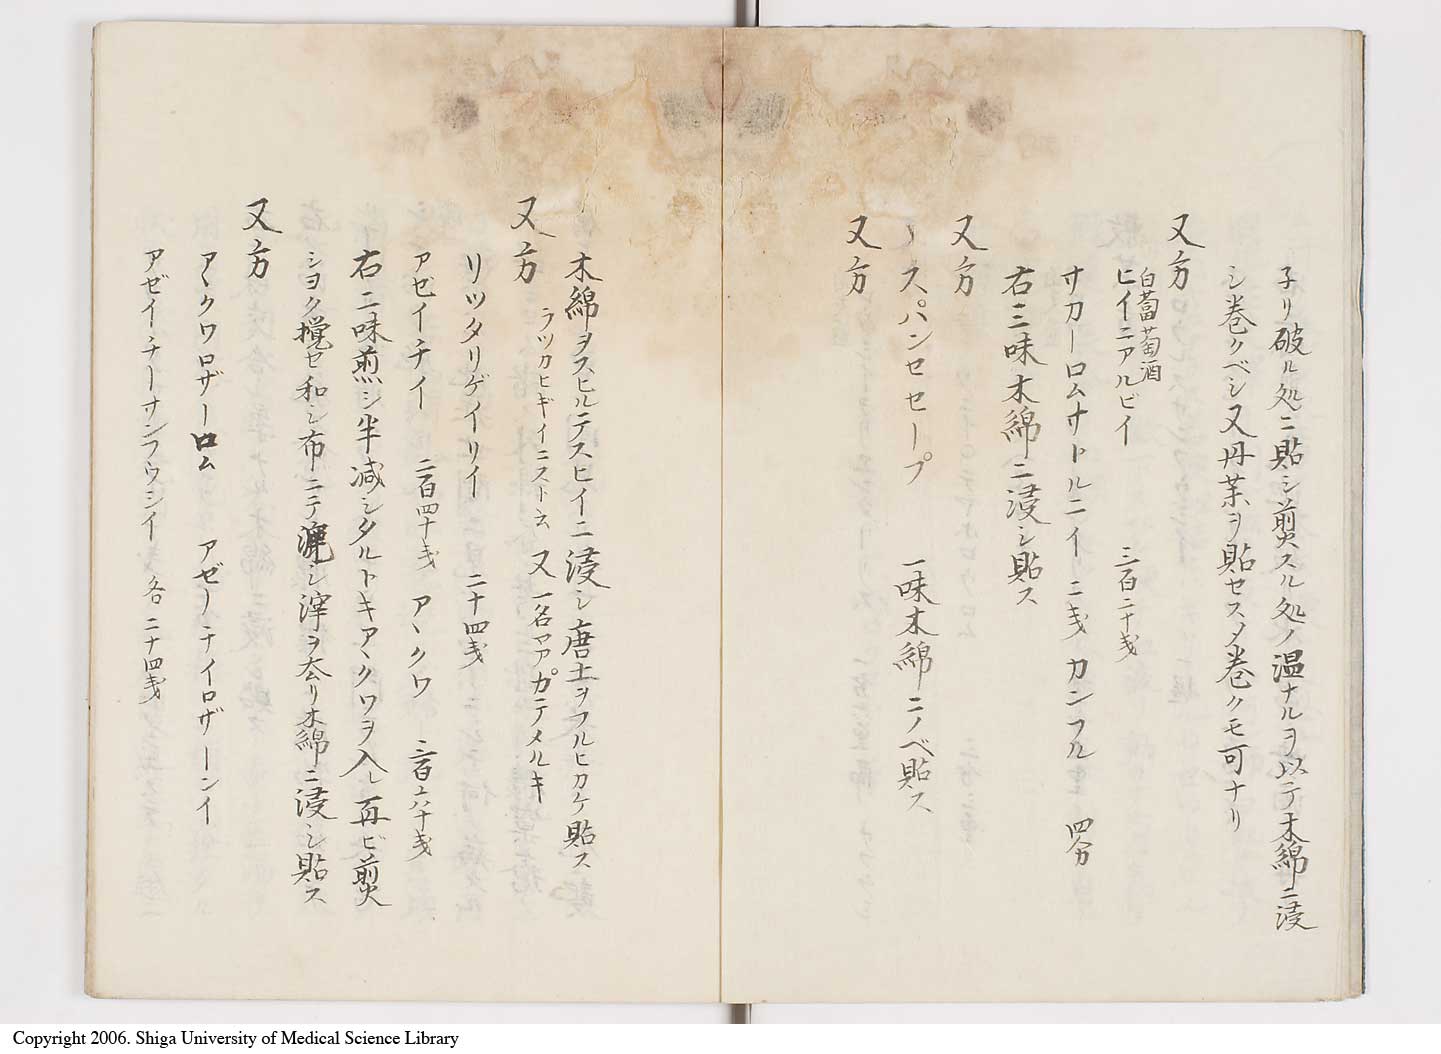 子リ破ル処ニ貼シ煎スル処ノ温ナルヲ以テ木綿ニ浸
シ巻クベシ又丹薬ヲ貼セスノ巻クモ可ナリ
又方
白葡萄酒
ヒイニアルビイ 三百二十戔
サカーロムサトルニイ 二戔 カンフル 四分
右三味木綿ニ浸シ貼ス
又方
スパンセセープ 一味木綿ニノベ貼ス
又方
木綿ヲスヒルテスヒイニ浸シ唐土ヲフルヒカケ貼ス
又方 ラツカヒギイニスト云 又一名マアプカテメルキ
リツタリゲイリイ 二十四戔
アセイチイ 二百四十戔 アヽクワ 三百六十戔
右二味煎シ半減シタルトキアヽクワヲ入レ再ビ煎
シヨク攪セ和シ布ニテ漉シ滓ヲ去リ木綿ニ浸シ貼ス
又方
アヽクワロザーロム アゼーテイロザーンイ
アゼイチーサンフウシイ 各二十四戔
Copyright 2006. Shiga University of Medical Science Library